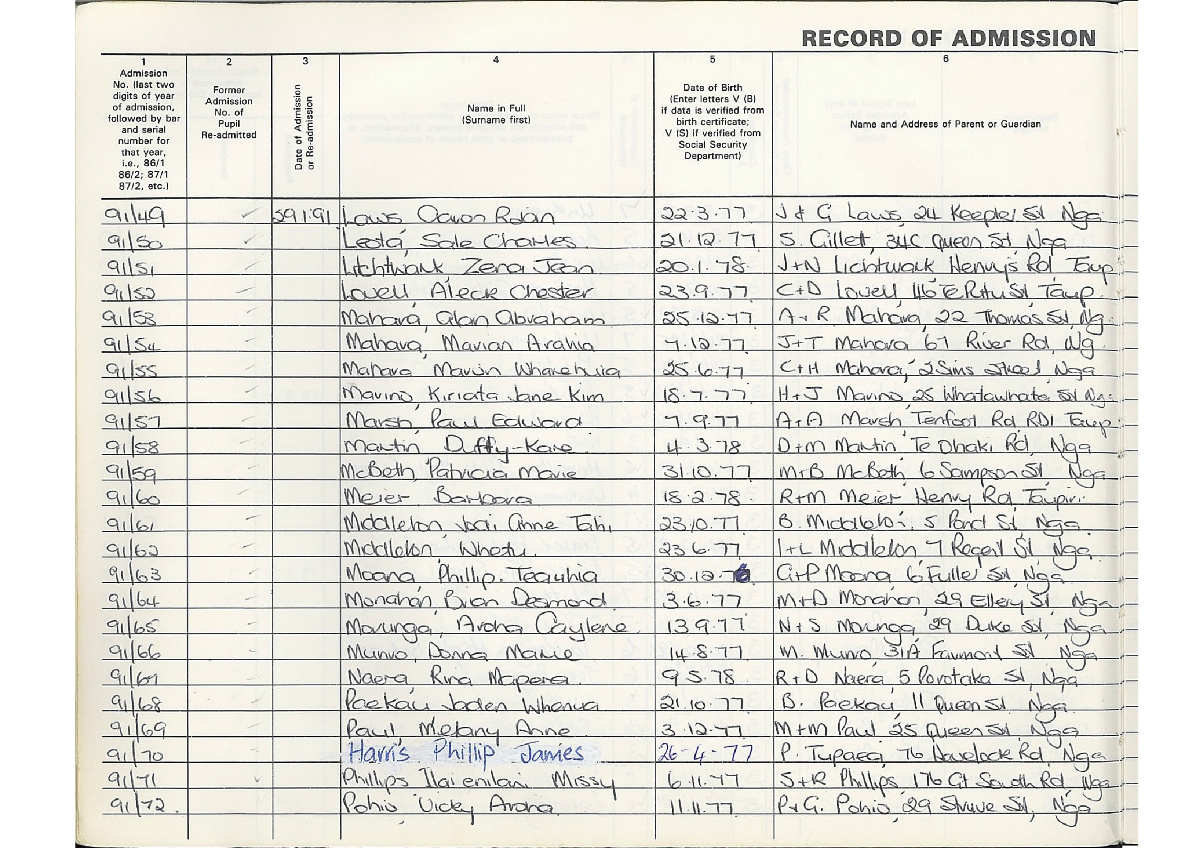 RECORD OF ADMISSION
1 2 3 4 5 6
Admission No. (last two digits of year of admission, followed by bar and serial number for that year, i.e., 86/1 86/2; 87/1 87/2, etc.)
Former Admission No. of Pupil Re-admitted
Date of Admission or Re-admission
Name in Full (Surname first)
Date of Birth (Enter letters V (B) if data is verified from birth certificate; V (S) if verified from Social Security Department)
Name and Address of Parent or Guardian
91/49 Laws 22.3.77 J & G Laws, 24 Kepler St Nga
91/50 Leota, Sale Charles 21.12.77 S. Gillet, 34C Queen St, Nga
91/51 Litchtwark, Zena Jean 20.1.78 J+N Lichtwark Henry's Rd Taup
91/52 Lovell, Aleck Chester 23.9.77 C+D Lovell, St Taup.
91/53 Mahara, Alan Abraham 25.12.77 A+R. Mahara, 22 Thomas St, Ng
91/54 Mahara, Marian Arahia 7.12.77 J+T Mahara 67 River Rd, Ng
91/55 Mahara Marvin Wharehuia 25.6.77 C+H Mahara, 2 Sims Street Nga
91/56 Marino, Kiriata Jane Kim 18.7.77 H+J Marino, 25 Whatawhata St Nga
91/57 Marsh, Paul Edward 7.9.77 A+A Marsh Tenfoot Rd RD1 Taup
91/58 Martin Duffy-Kare 4.3.78 D+M Martin Te Ohaki Rd, Nga
91/59 McBeth Patricia Marie 31.10.77 M+B McBeth, 6 Sampson St Nga
91/60 Meier Barbara 18.2.78 R+M Meier Henry Rd, Taupiri
91/61 Middleton Anne 23.10.77 B. Middleton, 5 Pond St, Nga
91/62 Middleton Whetu. 23.6.77 I+L Middleton 7 Regent St, Nga
91/63 Moana, Phillip. Tequhia 30.12.76 G+P Moana 6 Fuller St, Nga
91/64 Monahan, Brian Desmond. 3.6.77 M+D Monahan, 29 Ellery St, Nga
91/65 Morunga, Aroha Caylene 13.9.77 N+S Morunga, 29 Duke St, Nga
91/66 Munro, Donna Marie 14.8.77 M. Munro, 31A Fairmont St Nga
91/67 Naera, Rina Mapera 9.5.78 R+D Naera, 5 Porotaka St, Nga
91/68 Paekau Jaden Whenua 21.10.77 B. Paekau, 11 Queen St, Nga
91/69 Paul, Melany Anne 3.12.77 M+M Paul 25 Queen St, Nga
91/70 Harris Phillip James 26-4-77 P. Tupaea, 76 Havelock Rd, Nga
91/71 Phillips Missy 6.11.77 S+R Phillips, 176 Gt South Rd, Nga
91/72. Pohio Vicky Aroha 11.11.77 P+G. Pohio, 29 St, Nga